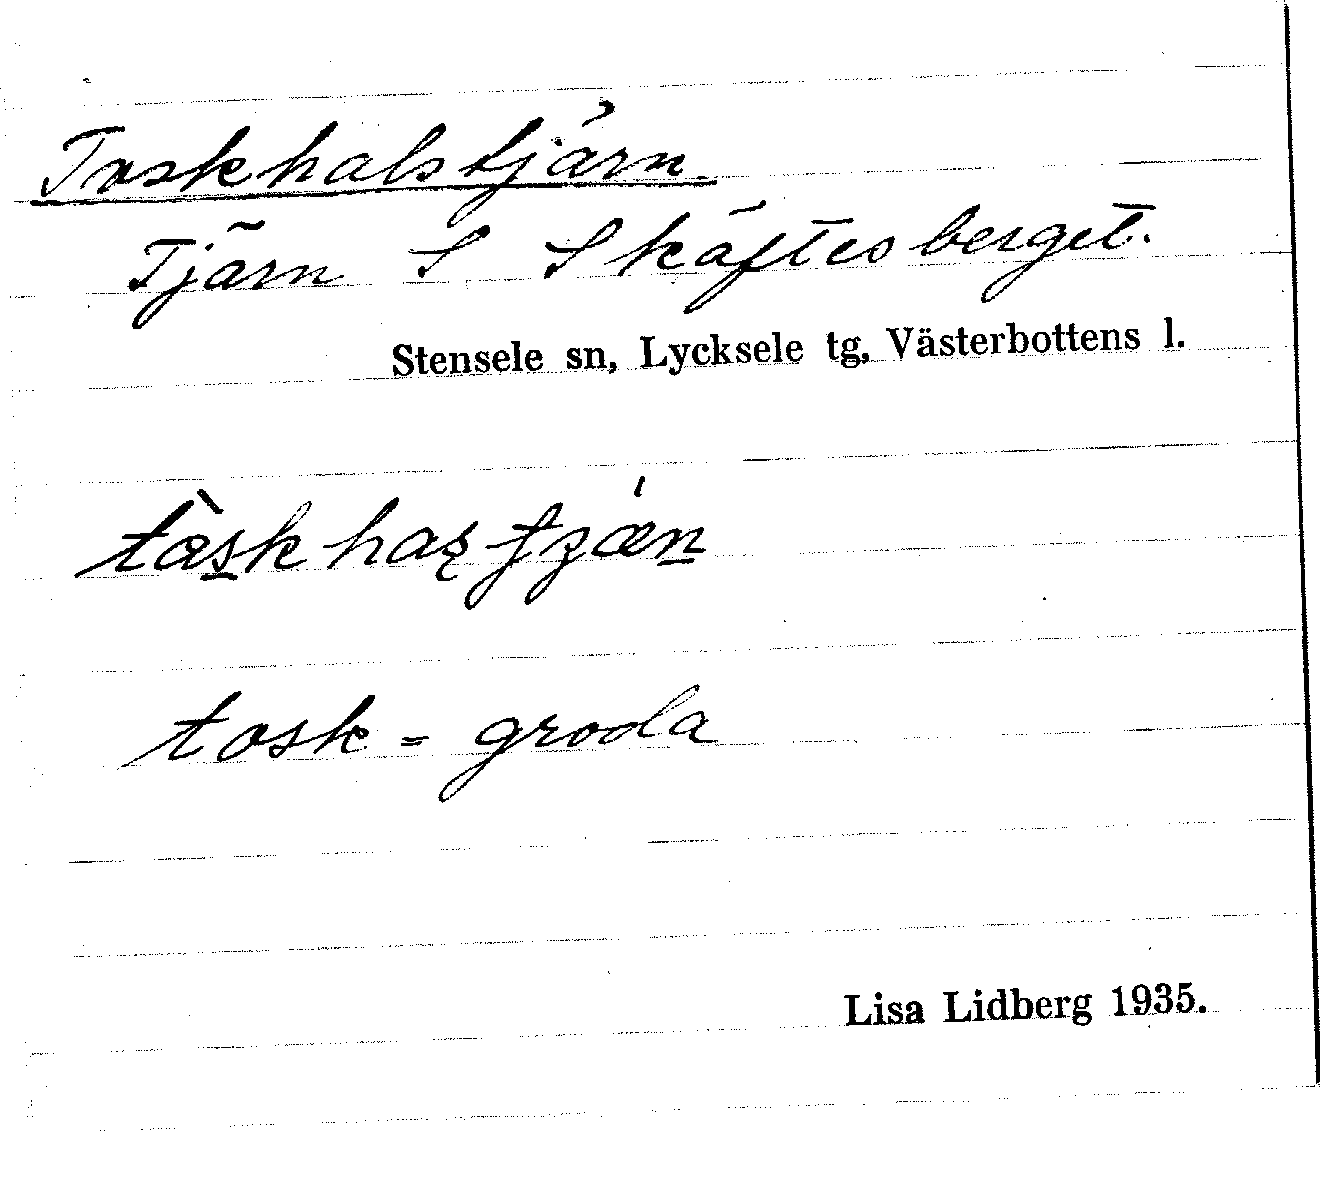 Toskhalstjärn
Tjärn S Skäftesberget.
Stensele sn, Lycksele tg, Västerbottens l.
tosk = groda
Lisa Lidberg 1935.